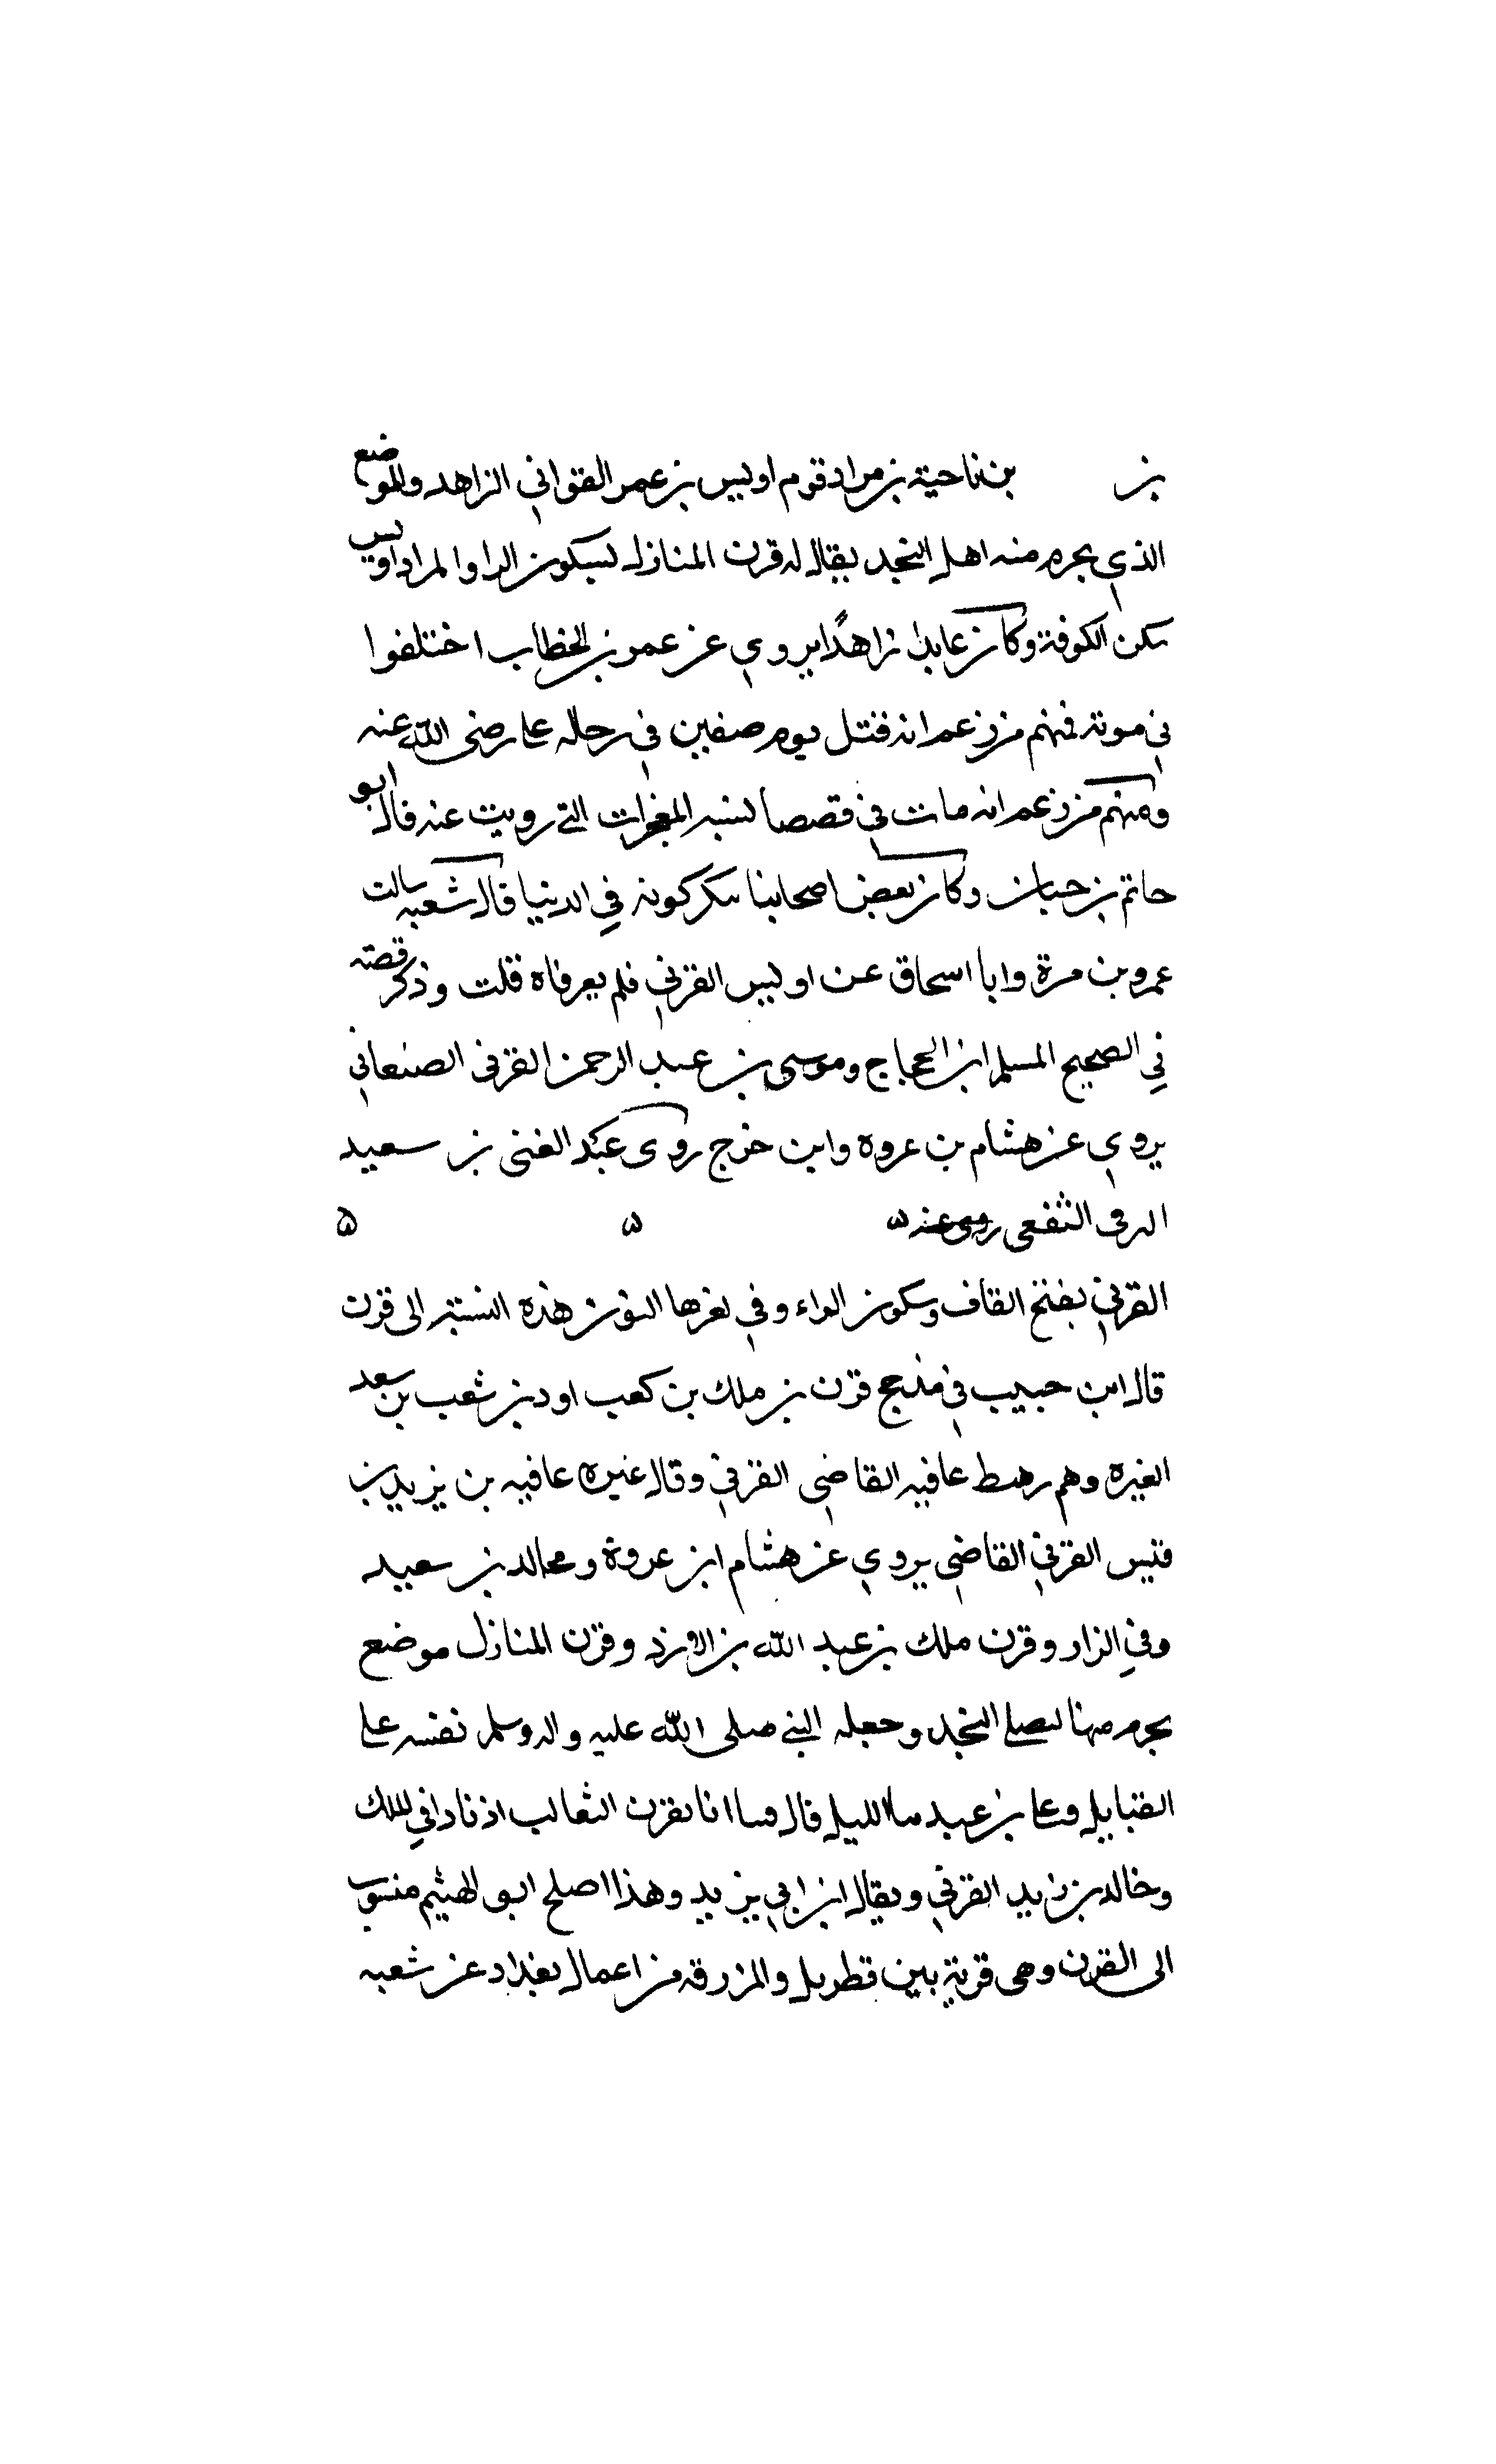 بن بن ناحية بن مراد قوم اويس بن عمر القواني الزاهد والموضع
الذي يحرم منه اهل النجد يقال له قرن المنازل لسكون الرا والمراد اويس
سكن الكوفة وكان عابدا زاهدًا يروي عن عمر بن الخطاب اختلفوا
في موته فمنهم من زعم انه قتل يوم صفين في رجاله على رضى الله عنه
ومنهم من زعم انه مات في قصصا لسبه المعجزات التي رويت عنه قال ابو
حاتم بن حبان وكان بعض اصحابنا سكر كونه في الدنيا قال شعبه سالت
عمرو بن مرة وابا اسحاق عن اويس القرني فلم يعرفاه قلت وذكر قصته
في الصحيح المسلم ابن الحجاج وموسى بن عبد الرحمن القرنى الصنعاني
يروي عن هشام بن عروه وابن خرج روى عبد الغنى بن سعيد
الثقفى روى عنه ه ه ه
القرني بفتح القاف وسكون الراء وفي اخرها النون هذه النسبة الى قرن
قال ابن حبيب في مذحج قرن بن ملك بن كعب اود بن شعب بن سعد
الغيره وهم رهط عافيه القاضى القرني وقال غيره عافيه بن يزيد بن
قيس القرني القاضي يروي عن هشام ابن عروة ومجالد بن سعيد
وفي الزار وقرن ملك بن عبد الله بن الازد وقرن المنازل موضع
يحرم منها النجد وجعله النبي صلى الله عليه واله وسلم نفسه على
القبايل وعلى بن عبد قال انا بقرن الثعالب اذ ناداني للملك
وخالد بن زايد القرني ويقال ابن ابي يزيد وهذا اصلح ابو الهيثم منسوب
الى القرن وهى قرية بين قطربل والمزرقه من اعمال بغداد عن شعبه